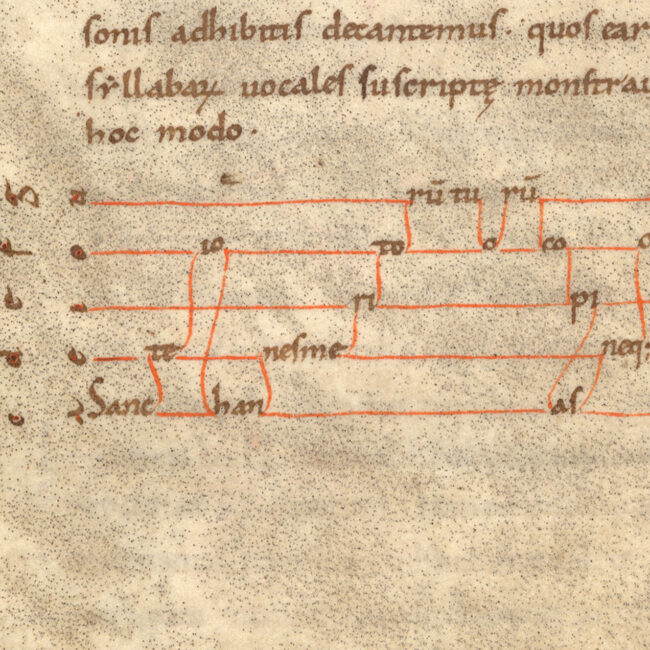 sonis adhibitis decantemus. quos ear
syllabaꝝ uocales suscriptę monstrau
hoc modo.
rū tu rū
io to o co
ri pi
te nesme neq;
Sanc han as